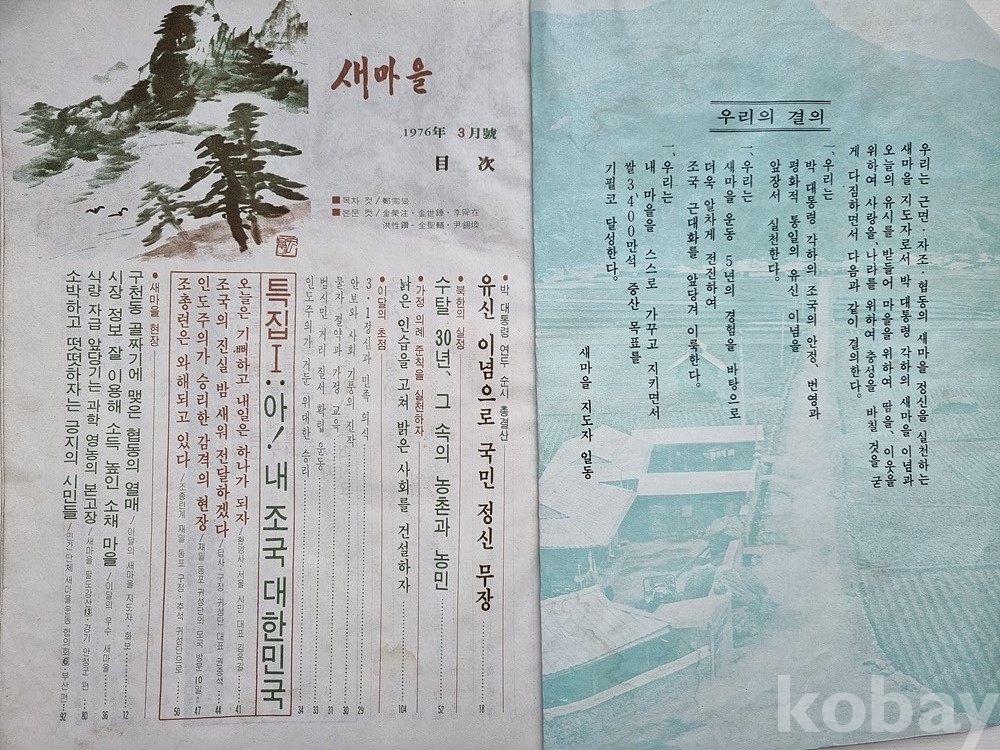 새마을
1976年 3月號
目 次
■목차 컷/鄭完燮
■본문 컷/金榮注・金世鍾・李舜在
洪性鑽・全聖輔・尹錫煥
• 박 대통령 연두 순시 총결산
유신 이념으로 국민 정신 무장 18
• 북한의 실정
수탈 30년, 그 속의 농촌과 농민 52
• 가정 의례 준칙을 실천하자
낡은 인습을 고쳐 밝은 사회를 건설하자 104
• 이달의 초점
3・1정신과 민족 의식 29
안보와 사회 기풍의 진작 30
물자 절약과 가정 교육 31
범시민 거리 질서 확립 운동 33
인도주의가 거둔 위대한 승리 34
특집Ⅰ:아! 내 조국 대한민국
오늘은 기뻐하고 내일은 하나가 되자/환영사・서울 시민 대표 김옥길 41
조국의 진실 밤 새워 전달하겠다/답사・구정 귀성단 대표 권중석 44
인도주의가 승리한 감격의 현장/재일 동포 귀성단의 모국 방문 10일 47
조총련은 와해되고 있다/조총련계 재일 동포 구정・추석 귀성단으로 50
• 새마을 현장
구천동 골짜기에 맺은 협동의 열매/이달의 새마을 지도자・화보 12
시장 정보 잘 이용해 소득 높인 소채 마을/이달의 우수 새마을 36
식량 자급 앞당기는 과학 영농의 본고장/새마을 팔도강산⑬・경기 안성군 편 80
소박하고 떳떳하자는 긍지의 시민들/민간 단체 새마을운동 협의회⑥・부산 편 92
우리의 결의
우리는 근면・자조・협동의 새마을 정신을 실천하는
새마을 지도자로서 박 대통령 각하의 새마을 이념과
오늘의 유시를 받들어 마을을 위하여 땀을, 이웃을
위하여 사랑을, 나라를 위하여 충성을 바칠 것을 굳
게 다짐하면서 다음과 같이 결의한다.
一、우리는
박 대통령 각하의 조국의 안정、번영과
평화적 통일의 유신 이념을
앞장서 실천한다.
一、우리는
새마을 운동 5년의 경험을 바탕으로
더욱 알차게 전진하여
조국 근대화를 앞당겨 이룩한다.
一、우리는
내 마을을 스스로 가꾸고 지키면서
쌀 3400만석 증산 목표를
기필코 달성한다.
새마을 지도자 일동
kobay